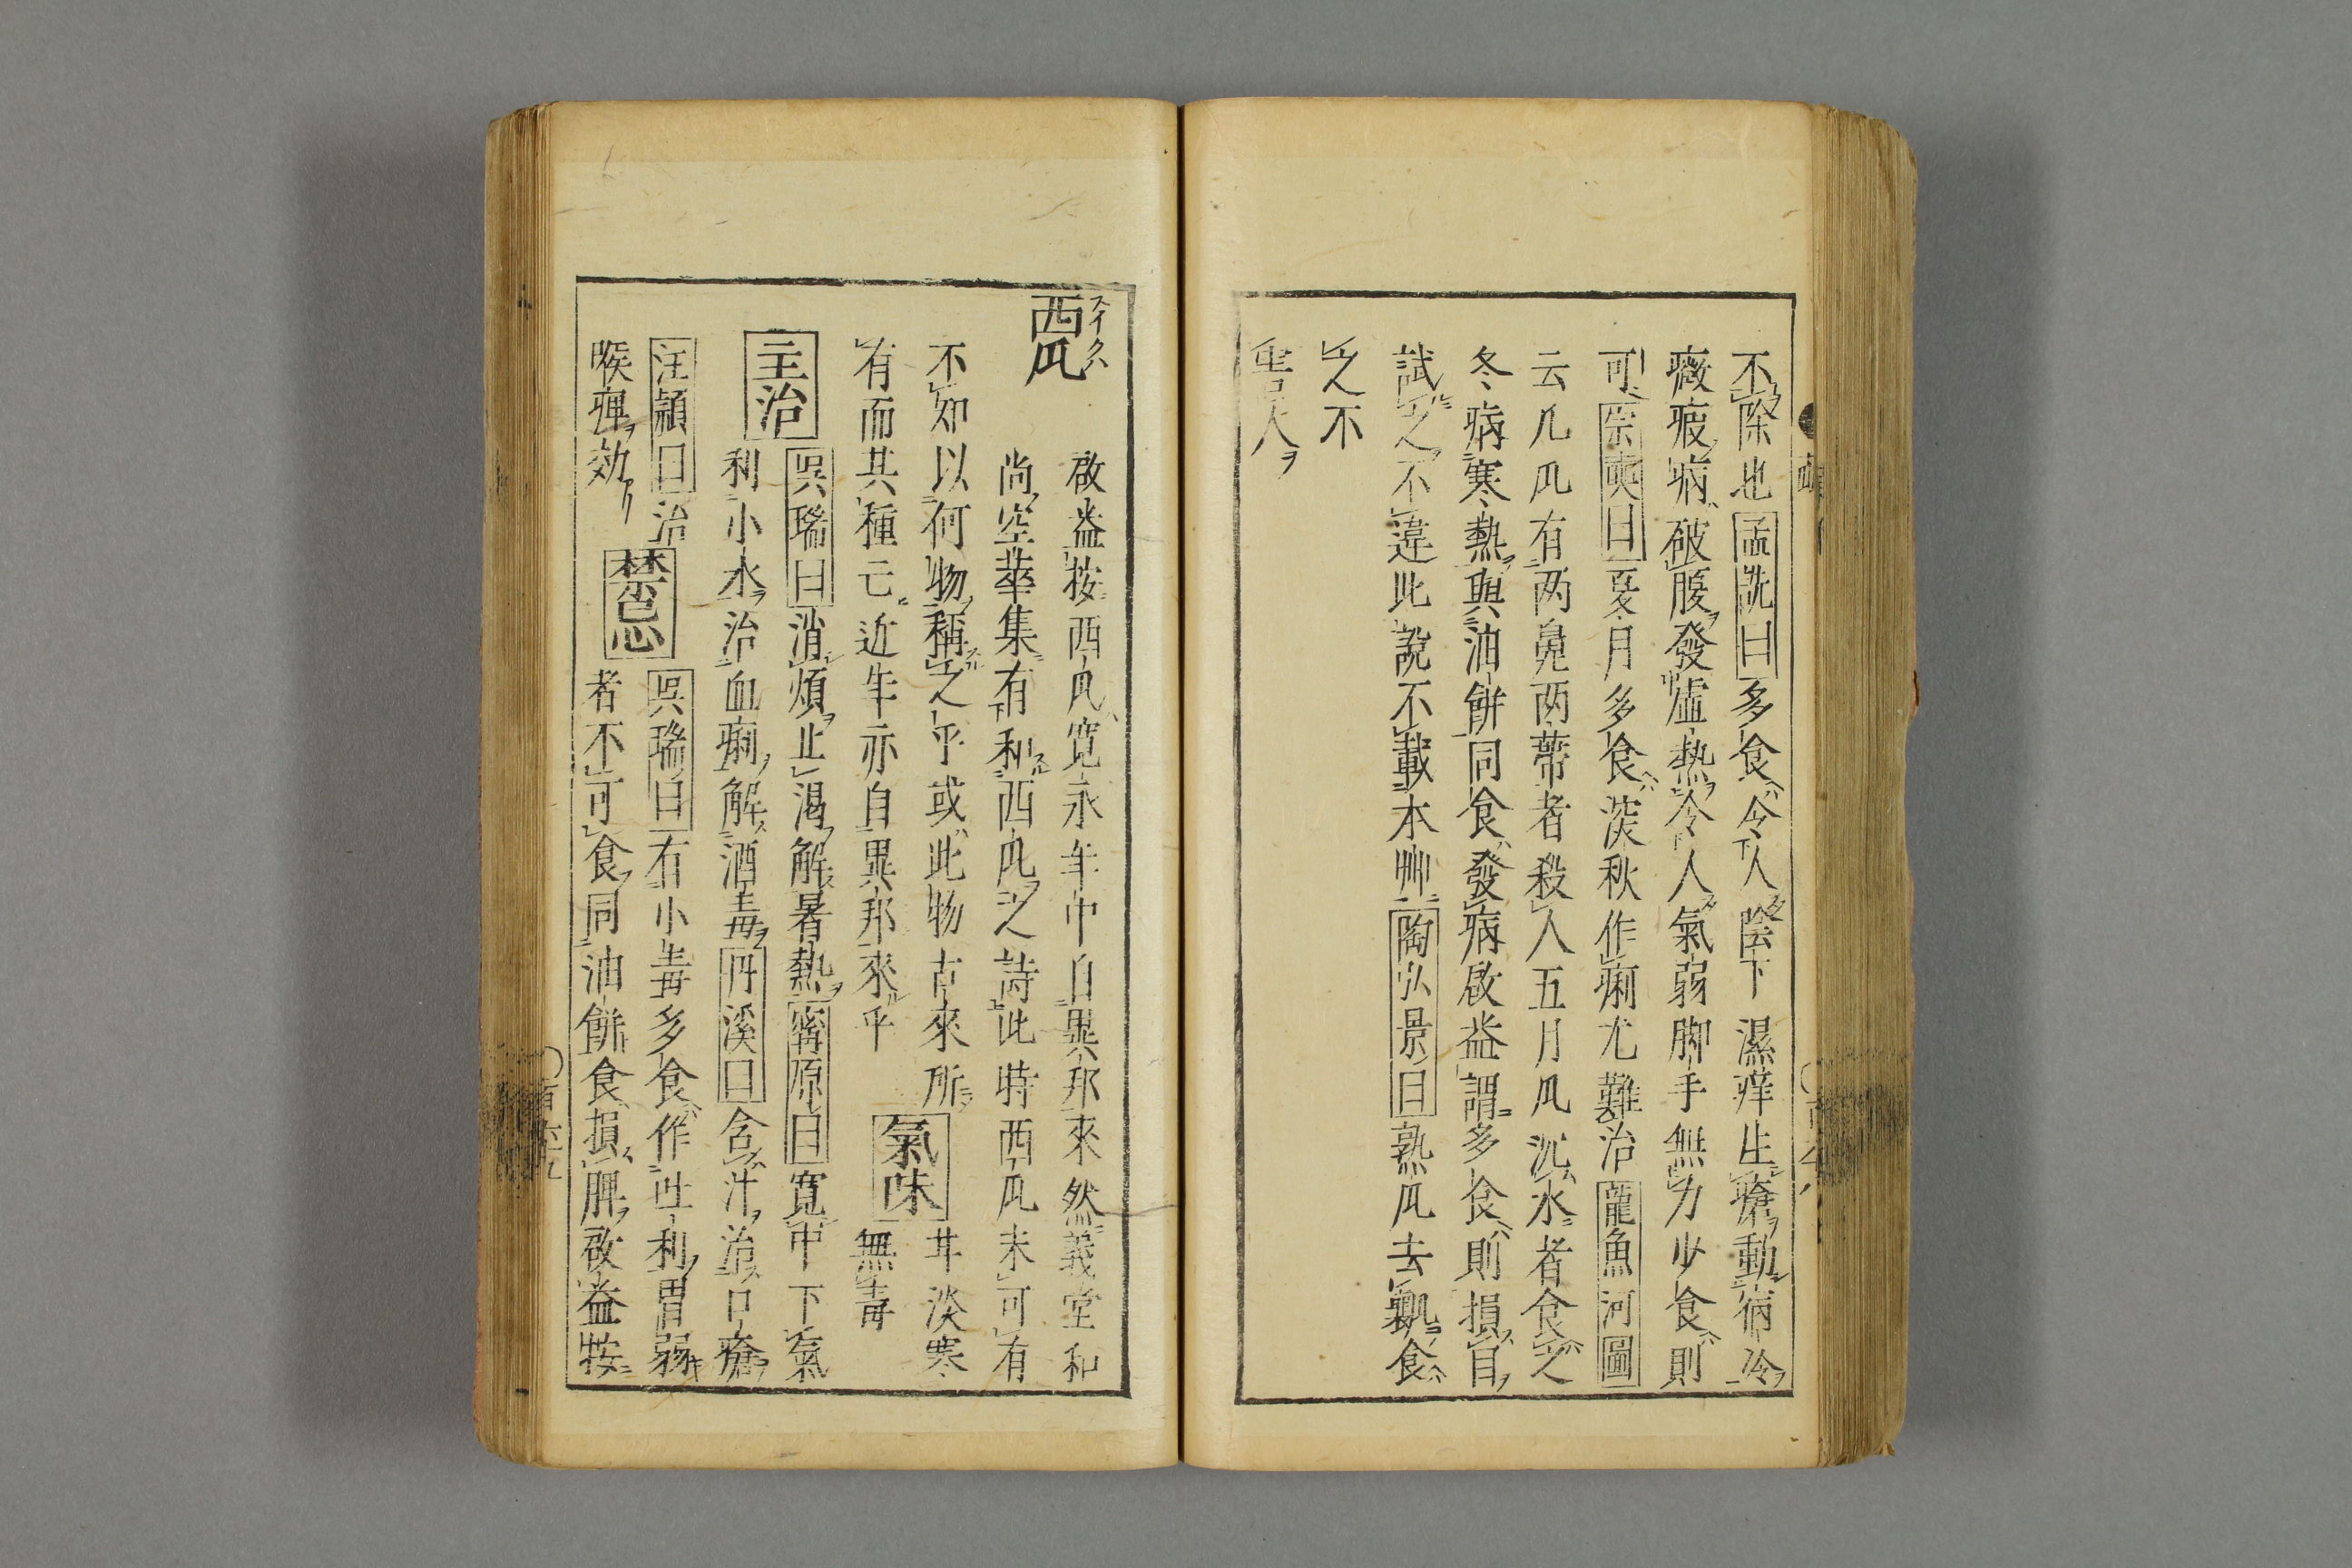 不除也孟詵曰多食令人陰下濕痒生瘡動病冷
癥疲病破腹發虛熱令人氣弱脚手無力少食則
可宗奭曰夏月多食茂秋作痢尤難治龍魚河圖
云凡瓜有两鼻两蒂者殺人五月瓜沉水者食之
冬病寒熱與油餅同食發病啟益謂多食則損目
試之不違此說不載本艸陶弘景曰熟瓜去瓤食
之不
害人
西瓜
スイクハ
啟益按西瓜寬永年中自異邦來然義堂和
尚空華集有和西瓜之詩此時西瓜未可有
不知以何物稱之乎或此物古來所
有而其種亡近年亦自異邦來乎
氣味
甘淡寒
無毒
主治
吳瑞曰消煩止渴解暑熱寗原曰寬中下氣
利小水治血痢解酒毒丹溪曰含汁治口瘡
汪頴曰治
喉痺効
禁忌
吳瑞曰有小毒多食作吐利胃弱
者不可食同油餅食損脾啟益按